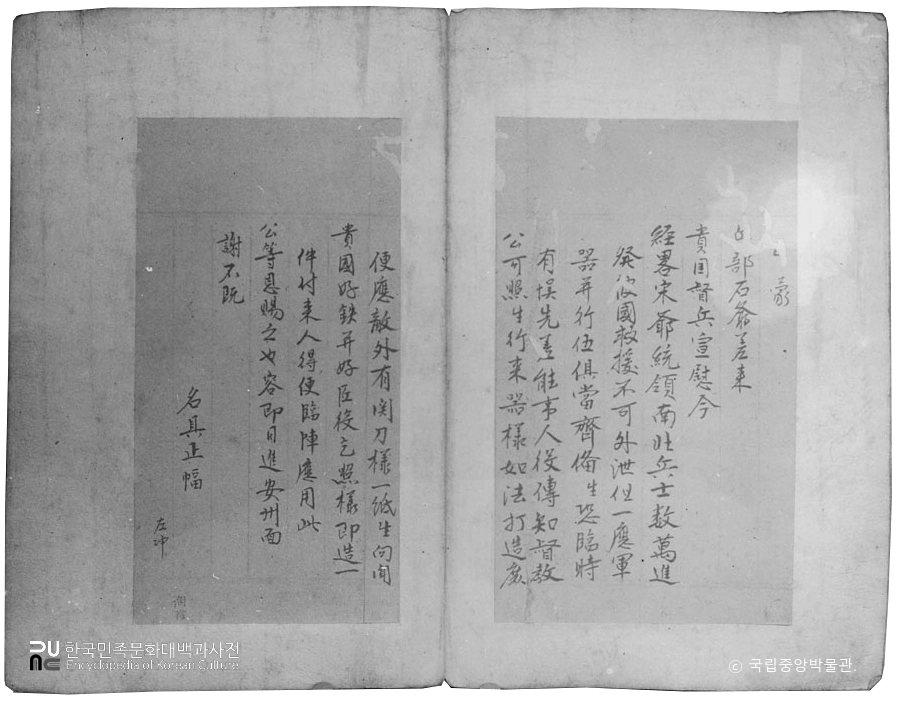 蒙
部石爺差来
貴国督兵宣慰今
経畧宋爺統領南北兵士数萬進
發汝國救援不可外泄但一應軍
器并行伍俱當齊俻生恐臨時
有悮先差能事人役傳知督教
公可照生行来器様如法打造庶
便應敵外有関刀様一紙生向聞
貴國好鉄并好匠役乞照様即造一
件付来人得便臨陣應用此
公等恩賜之也容即日進安州面
謝不既
名具正幅
左冲
한국민족문화대백과사전
Encyclopedia of Korean Culture
© 국립중앙박물관.